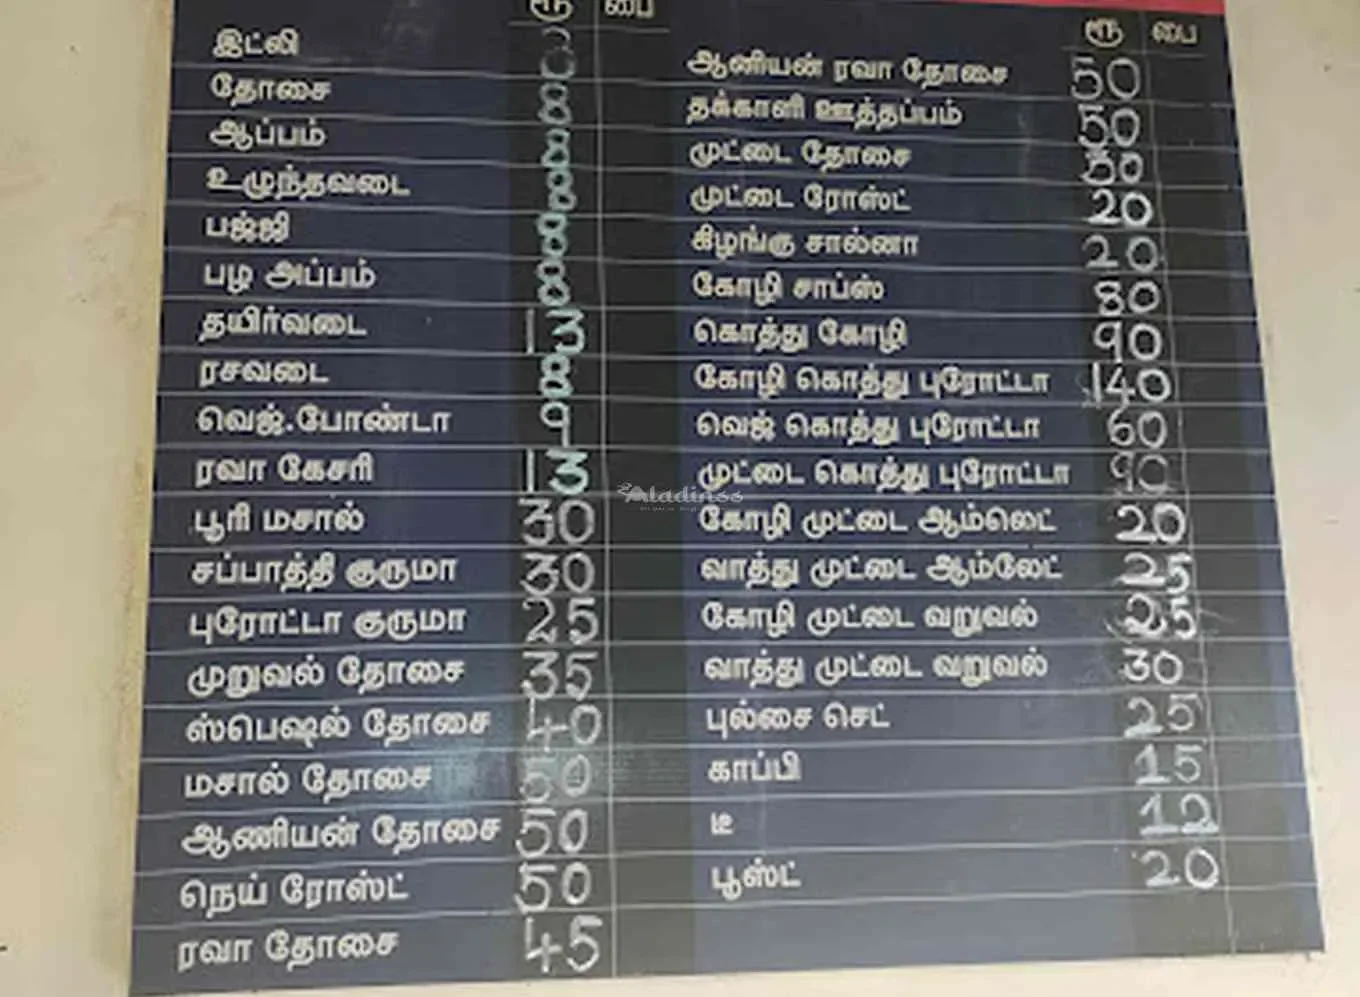 ரூ பை
இட்லி
தோசை
ஆப்பம்
உழுந்தவடை
பஜ்ஜி
பழ அப்பம்
தயிர்வடை
ரசவடை
வெஜ்.போண்டா
ரவா கேசரி
பூரி மசால் 30
சப்பாத்தி குருமா 30
புரோட்டா குருமா 25
முறுவல் தோசை 35
ஸ்பெஷல் தோசை 40
மசால் தோசை 50
ஆணியன் தோசை 50
நெய் ரோஸ்ட் 50
ரவா தோசை 45
ரூ பை
ஆனியன் ரவா தோசை 50
தக்காளி ஊத்தப்பம் 50
முட்டை தோசை
முட்டை ரோஸ்ட் 20
கிழங்கு சால்னா 20
கோழி சாப்ஸ் 80
கொத்து கோழி 90
கோழி கொத்து புரோட்டா 140
வெஜ் கொத்து புரோட்டா 60
முட்டை கொத்து புரோட்டா 90
கோழி முட்டை ஆம்லெட் 20
வாத்து முட்டை ஆம்லேட் 25
கோழி முட்டை வறுவல் 25
வாத்து முட்டை வறுவல் 30
புல்சை செட் 25
காப்பி 15
டீ 12
பூஸ்ட் 20
Aladinss